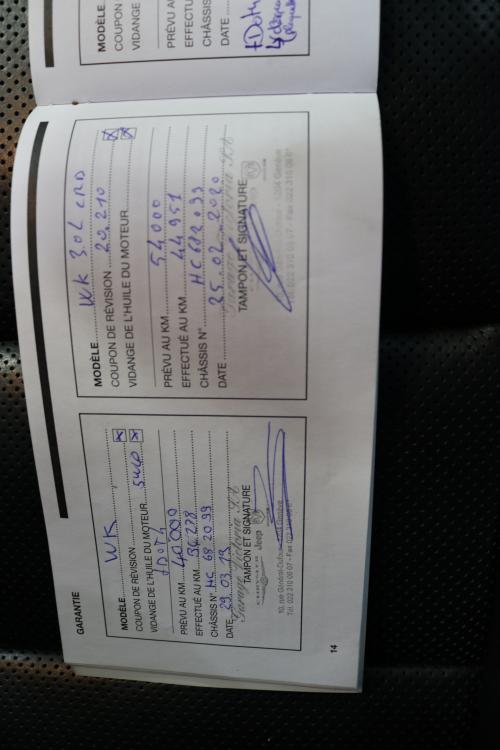 GARANTIE
MODÈLE WK
COUPON DE RÉVISION
VIDANGE DE L'HUILE DU MOTEUR 5W40
+DOT4
PRÉVU AU KM 40000
EFFECTUÉ AU KM 36278
CHÂSSIS N° HC 682099
DATE 29.03.19
TAMPON ET SIGNATURE
Jeep
10, rue Général-Dufour
Tél. 022 310 06 07 - Fax 022 310 06 87
14
MODÈLE WK 3.0L CRD
COUPON DE RÉVISION 20.210
VIDANGE DE L'HUILE DU MOTEUR
PRÉVU AU KM 54000
EFFECTUÉ AU KM 44951
CHÂSSIS N° HC 682099
DATE 25.02.2020
TAMPON ET SIGNATURE
MODÈLE
COUPON
VIDANGE
PRÉVU A
EFFECTU
CHÂSSIS
DATE
+Dot4